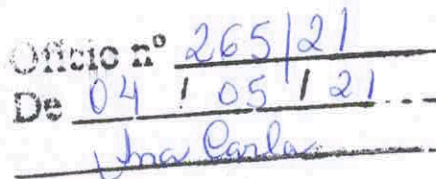 Ofício nº 265/21
De 04 / 05 / 21
Ana Carla